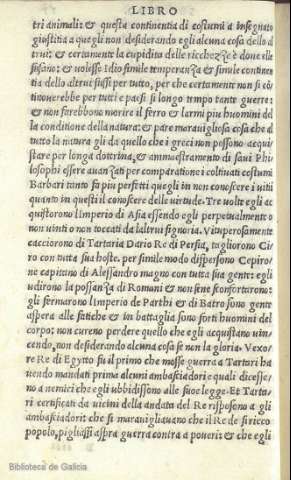 LIBRO
tri animali: & questa continentia di costumi a insegnato
giustitia a quegli non desiderando egli alcuna cosa dello al
trui: & certamente la cupidita delle ricchezze è doue elle
si usano: & uolesse Idio simile temperanza & simule contine
tia dello altrui fussi per tutto, per che certamente non si cō
tinouerebbe per tutti e paesi si longo tempo tante guerre:
& non sarebbono morire il ferro & larmi piu huomini del
la conditione della natura: & pare marauigliosa cosa che al
tutto la natura gli da quello che i greci non possono acqui
stare per longa dottrina, & ammestramento di saui Phi
losophi essere auanzati per comparatione i coltiuati costumi
Barbari tanto fa piu perfetti quegli in non conoscere i uitii
quanto in questi il conoscere delle uirtude. Tre uolte egli ac
quistorono lImperio di Asia essendo egli perpetualmento o
non uinti o non toccati da laltrui signoria. Vituperosamente
cacciorono di Tartaria Dario Re di Persia, tagliorono Ci
ro con tutta sua hoste. per simile modo dispersono Cepiro
ne capitano di Alessandro magno con tutta sua gente: egli
udirono la possanza di Romani & non sene sconfortarono:
gli fermarono lImperio de Parthi & di Batro sono gente
aspera alle fatiche & in battaglia sono forti huomini del
corpo: non cureno perdere quello che egli acquistano uin
cendo, non desiderando alcuna cosa se non la gloria. Vexo
re Re di Egytto fu il primo che mosse guerra a Tartari ha
uendo mandati prima alcuni ambasciadori e quali dicesse
no a nemici che egli ubbidissono alle sue legge. Et Tarta
ri certificati da uicini della andata del Re risposono a gli
ambasciadori: che si marauigliauano che il Re de si ricco
popolo, pigliassi aspra guerra contra a poueri: & che egli
Biblioteca de Galicia